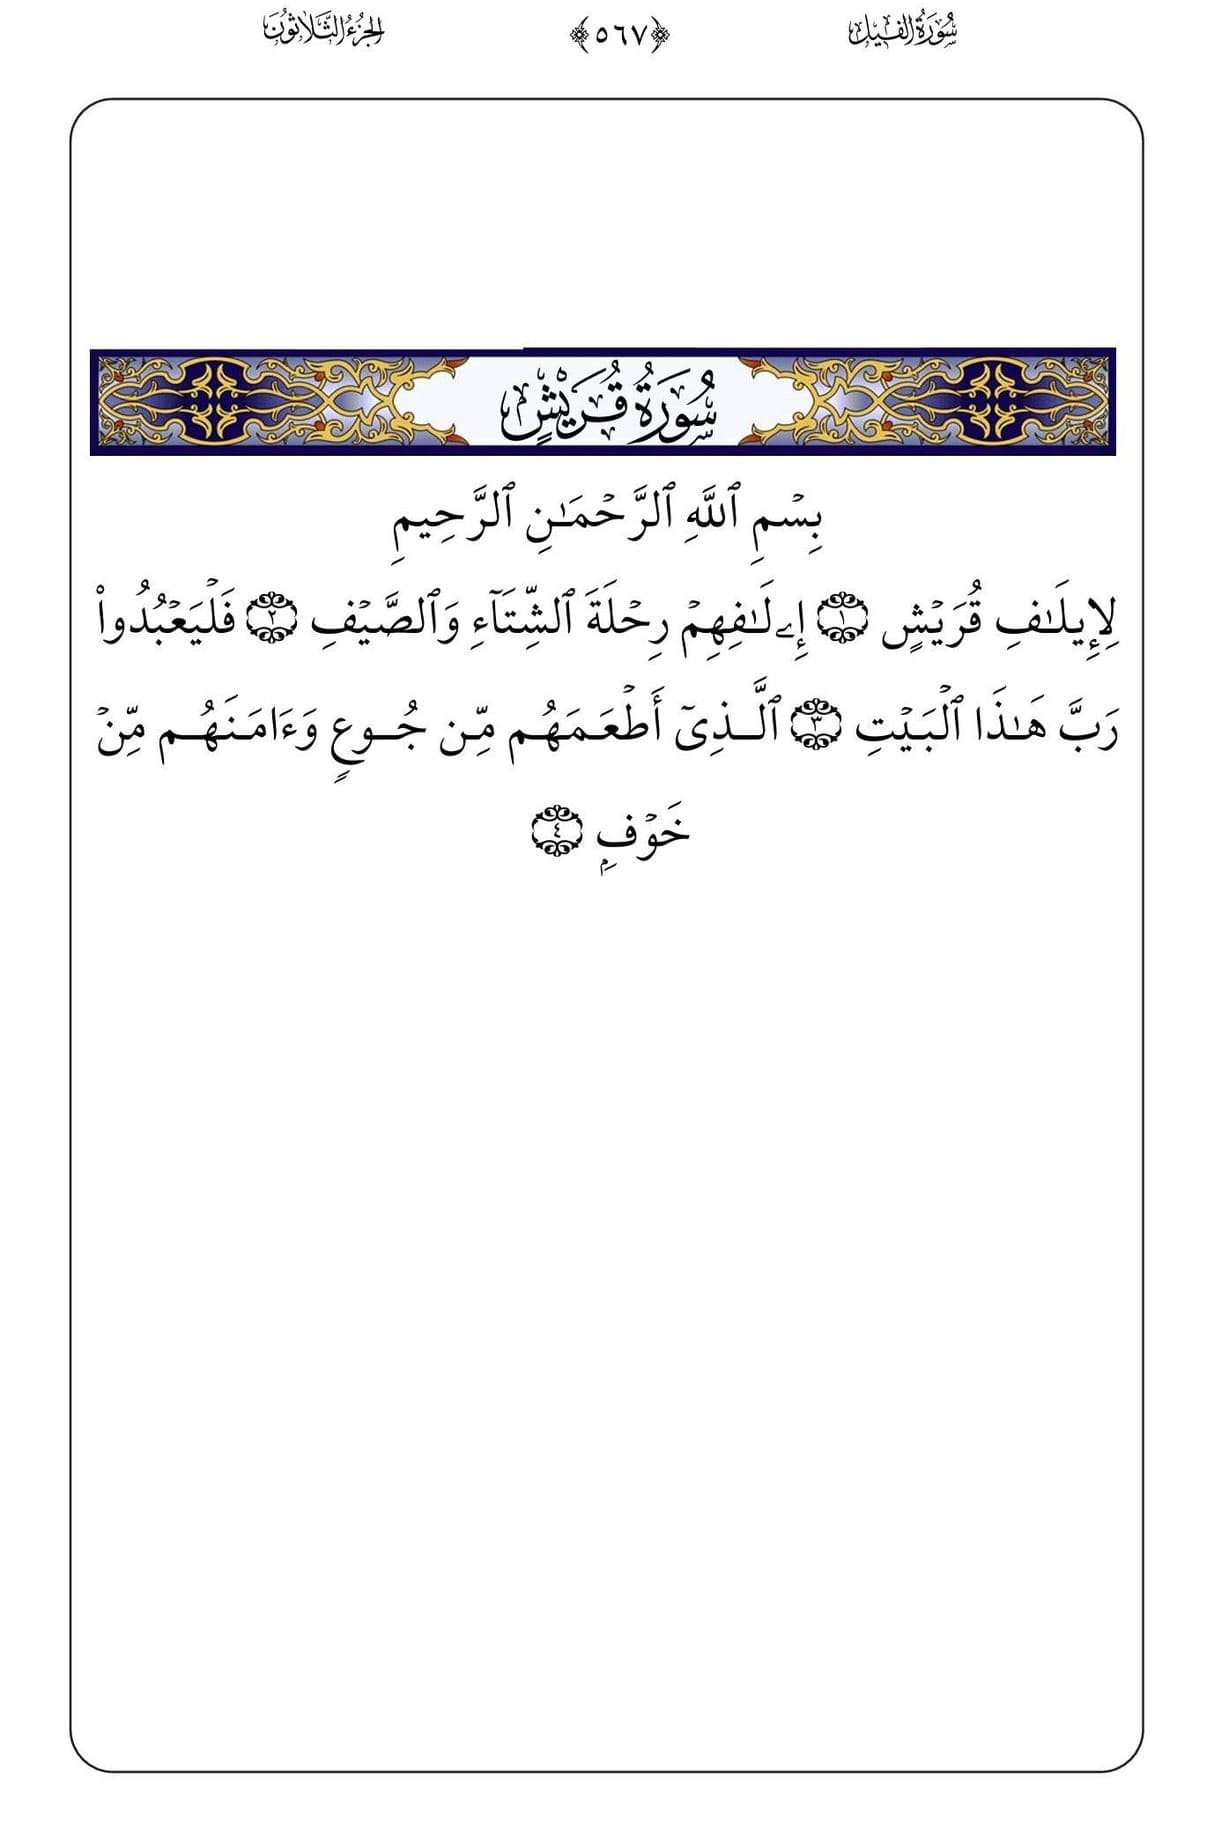 سُورَةُ الفِيل ﴿٥٦٧﴾ الجُزْءُ الثَّلَاثُونَ
سُورَةُ قُرَيْشٍ
بِسْمِ ٱللَّهِ ٱلرَّحْمَٰنِ ٱلرَّحِيمِ
لِإِيلَٰفِ قُرَيْشٍ ١ إِۦلَٰفِهِمْ رِحْلَةَ ٱلشِّتَآءِ وَٱلصَّيْفِ ٢ فَلْيَعْبُدُوا۟
رَبَّ هَٰذَا ٱلْبَيْتِ ٣ ٱلَّذِىٓ أَطْعَمَهُم مِّن جُوعٍ وَءَامَنَهُم مِّنْ
خَوْفٍۭ ٤